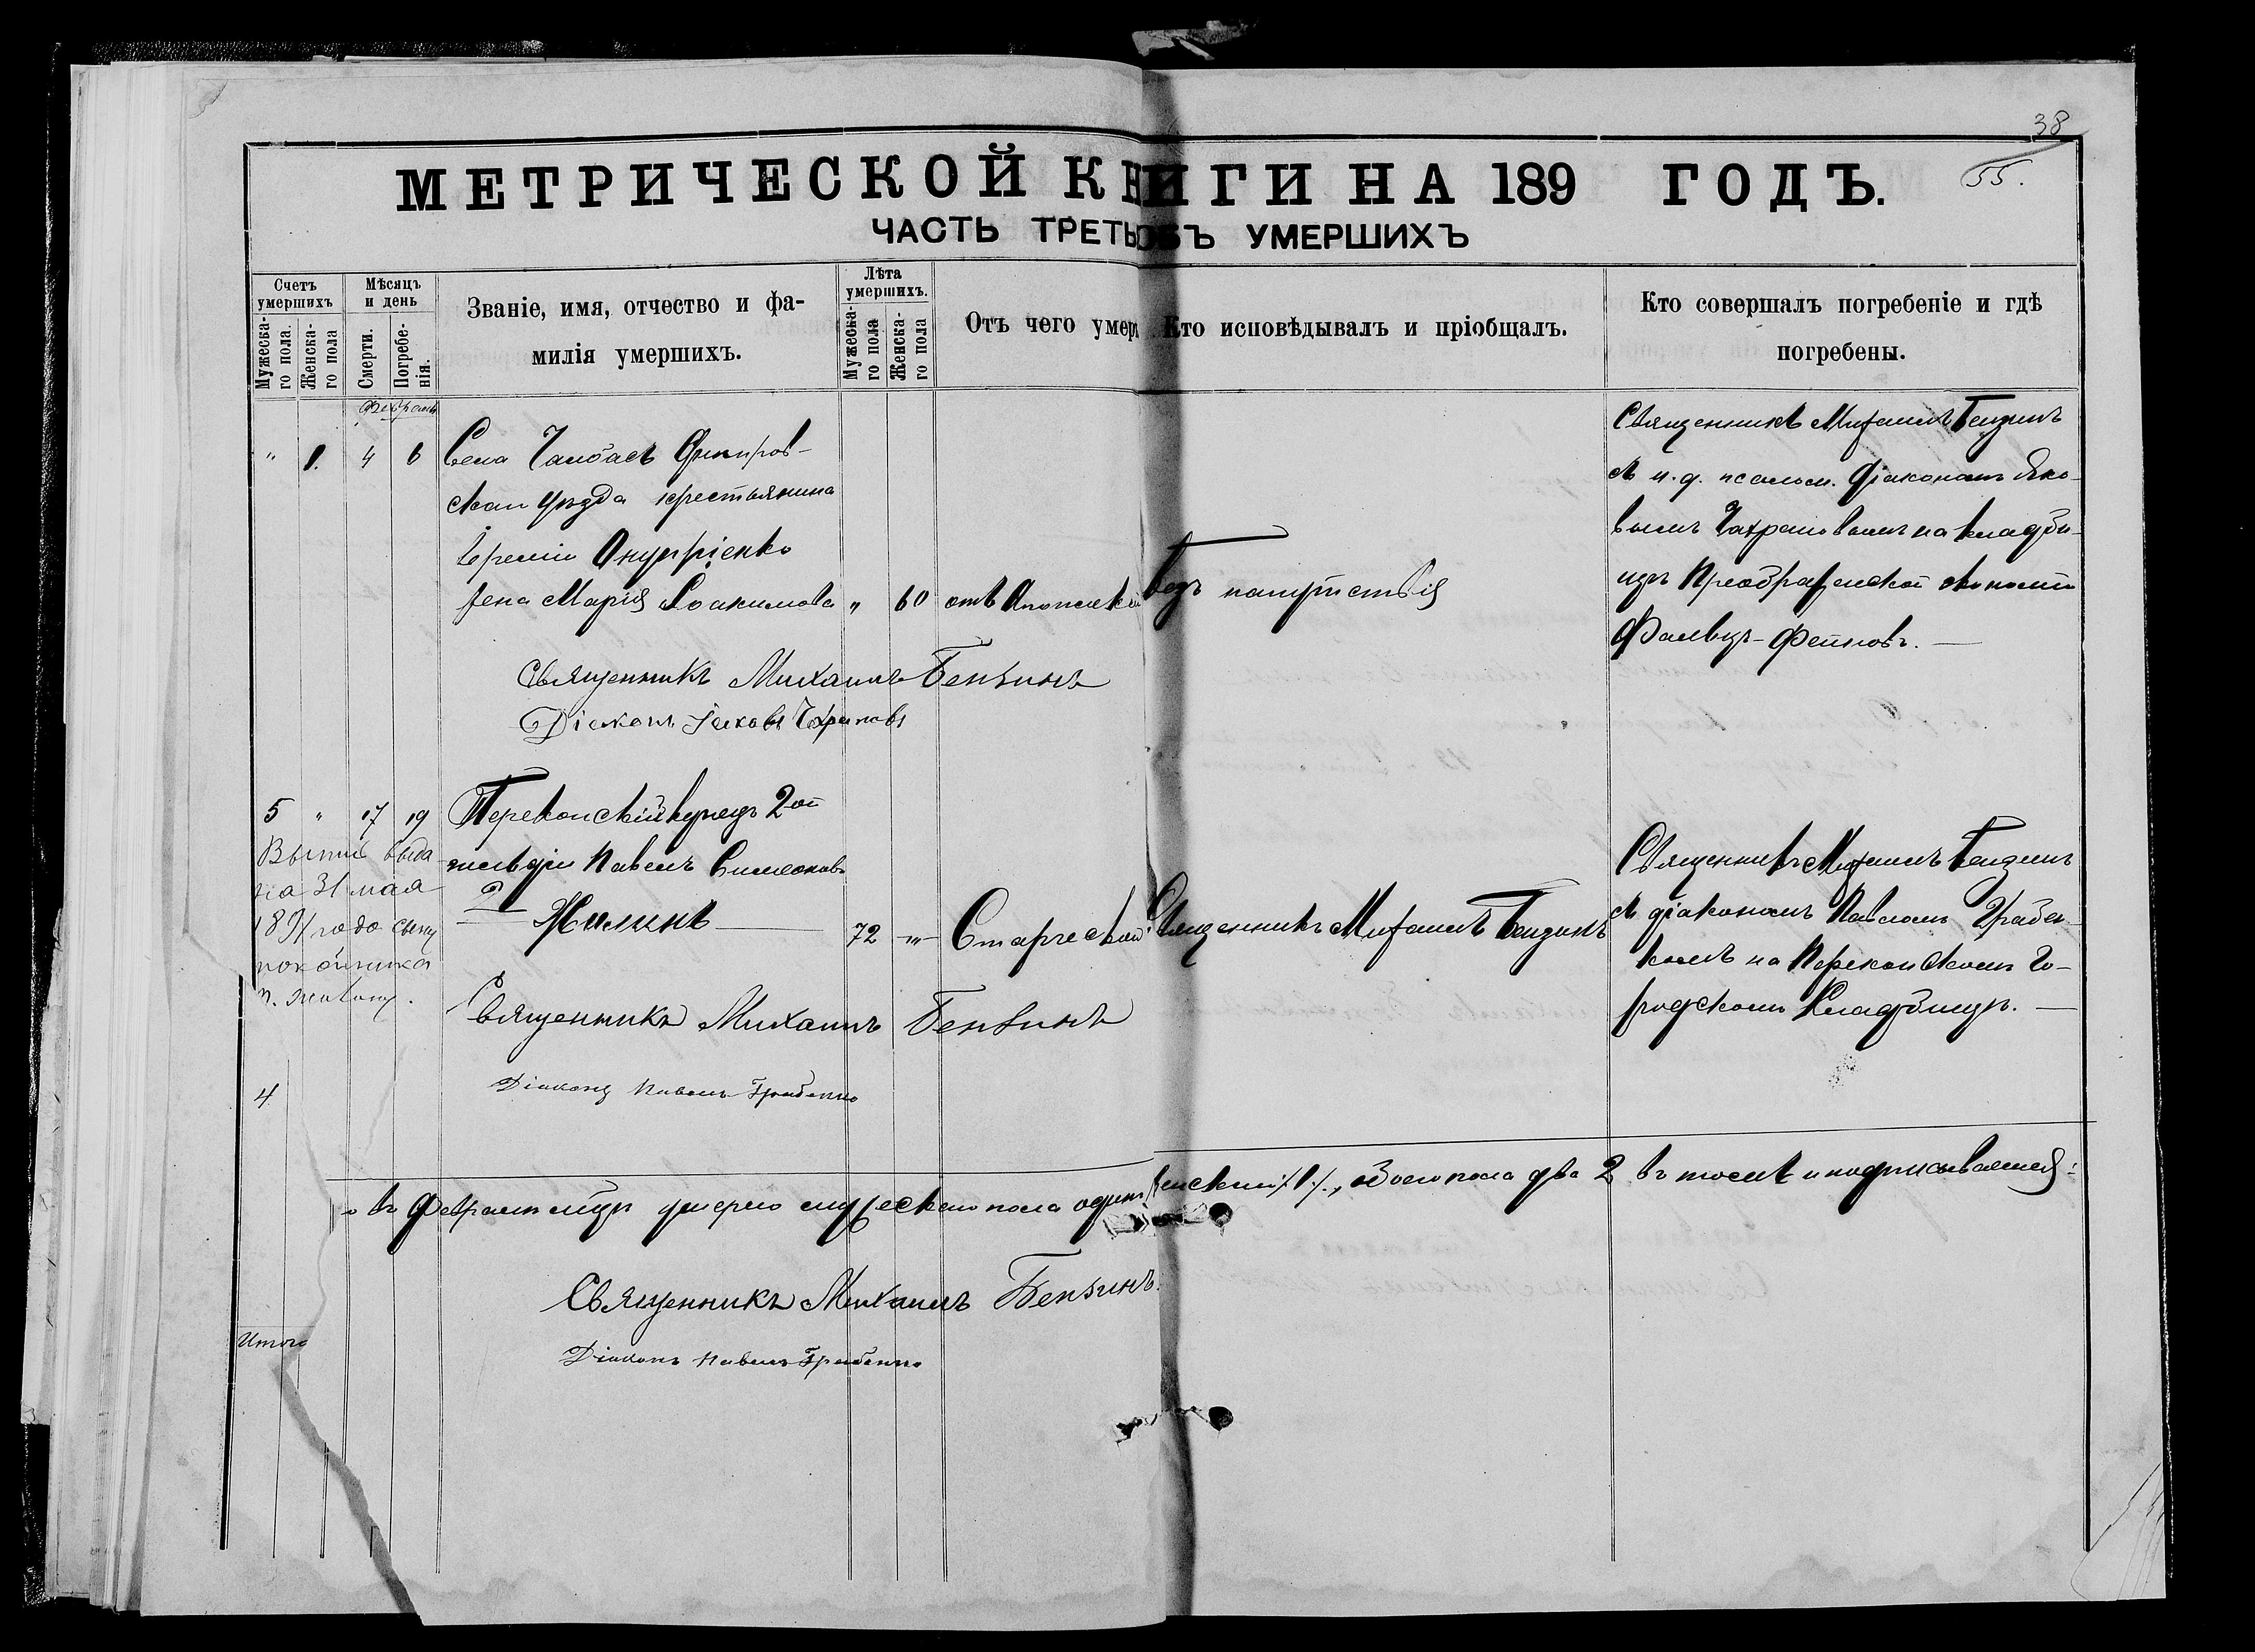 38
55.
МЕТРИЧЕСКОЙ КНИГИ НА 189 ГОДЪ.
ЧАСТЬ ТРЕТЬ ОБЪ УМЕРШИХЪ
Счетъ умершихъ
Мужеска-
го пола.
Женска-
го пола
Мѣсяцъ и день
Смерти.
Погребе-
нія.
Званіе, имя, отчество и фа-
милія умершихъ.
Лѣта умершихъ.
Мужеска-
го пола
Женска-
го пола
Отъ чего умер
Кто исповѣдывалъ и пріобщалъ.
Кто совершалъ погребеніе и гдѣ
погребены.
" 1. 4 6 Села
уѣзда крестьянина
Онуфріенко
жена Марія Іоакимова " 60 отъ
Безъ напутствія
Священникъ Михаилъ Бензинъ
съ и. д. псалом. діакономъ Яко-
вымъ на кладби-
щѣ Преображенской экономіи
Фальцъ-Фейновъ. —
Священникъ Михаилъ Бензинъ
Діаконъ Іаковъ
5 " 17 19 Перекопскій купецъ 2ой
гильдіи Павелъ Симеоновъ
Жилинъ 72 "
Священникъ Михаилъ Бензинъ
Священникъ Михаилъ Бензинъ
съ діакономъ Павломъ Грабен-
комъ на Перекопскомъ го-
родскомъ кладбищѣ. —
на 31 мая
сыну
покойника
Священникъ Михаилъ Бензинъ
Діаконъ Павелъ Грабенко
4
въ Февралѣ м-цѣ умерло мужескаго пола одинъ женскаго 1, обоего пола два 2 въ томъ и подписываемся:
Священникъ Михаилъ Бензинъ.
Діаконъ Павелъ Грабенко
Итого